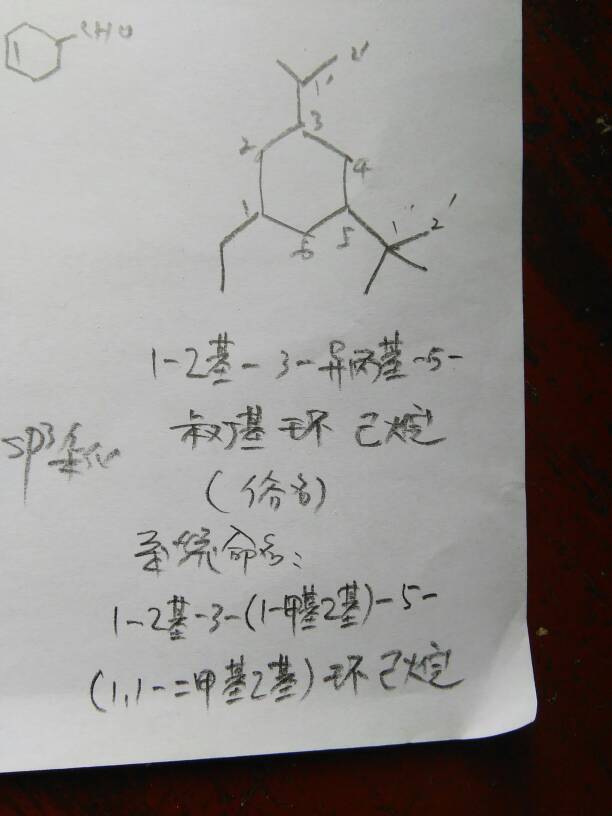 CHO
1
2'
1'
3
2
4
1
5
6
1'
2'
1-2基-3-异丙基-5-
叔丁基环己烷
(俗名)
sp3杂化
系统命名:
1-2基-3-(1-甲基2基)-5-
(1,1-二甲基2基)环己烷